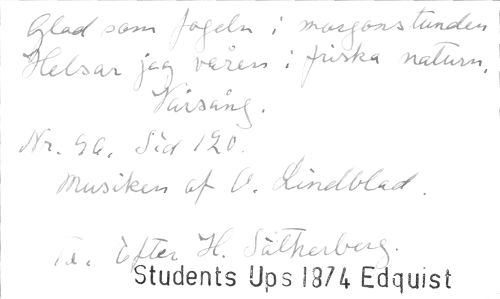 Glad som fogeln i morgonstunden
Helsar jag våren i friska naturn.
Vårsång.
Nr. 92. Sid 120.
Musiken af O. Lindblad.
Tx. Efter H. Sätherberg.
Students Ups 1874 Edquist